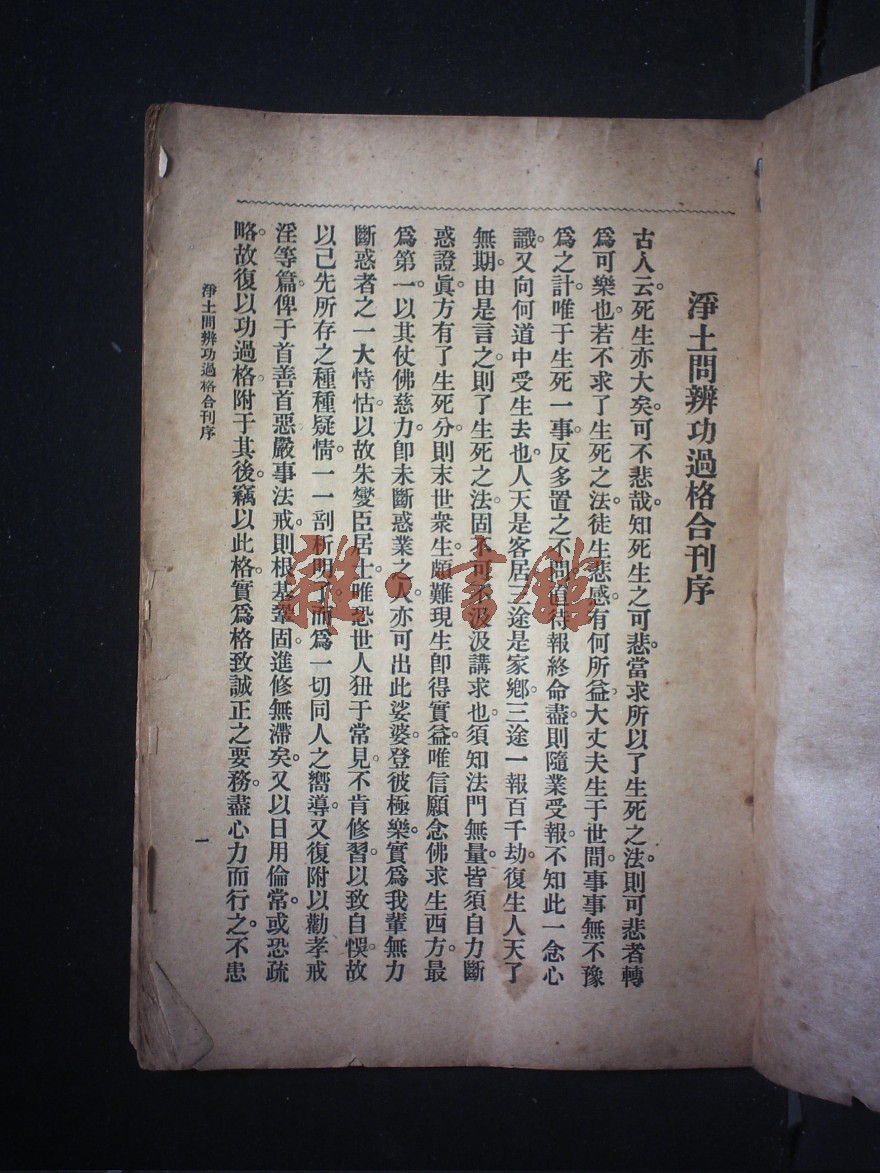 淨土問辨功過格合刊序
古人云。死生亦大矣。可不悲哉。知死生之可悲。當求所以了生死之法。則可悲者轉
爲可樂也。若不求了生死之法。徒生悲感。有何所益。大丈夫生于世間。事事無不豫
爲之計。唯于生死一事。反多置之不問。直待報終命盡。則隨業受報。不知此一念心
識。又向何道中受生去也。人天是客居。三途是家鄉。三途一報百千劫。復生人天了
無期。由是言之。則了生死之法。固不可不汲汲講求也。須知法門無量。皆須自力斷
惑證眞。方有了生死分。則末世衆生。頗難現生卽得實益。唯信願念佛求生西方。最
爲第一。以其仗佛慈力。卽未斷惑業之人。亦可出此娑婆。登彼極樂。實爲我輩無力
斷惑者之一大恃怙。以故朱燮臣居士。唯恐世人狃于常見。不肯修習。以致自悞。故
以己先所存之種種疑情。一一剖析明了。而爲一切同人之嚮導。又復附以勸孝戒
淫等篇。俾于首善首惡。嚴事法戒。則根基鞏固。進修無滯矣。又以日用倫常。或恐疏
略。故復以功過格附于其後。竊以此格。實爲格致誠正之要務。盡心力而行之。不患
淨土問辨功過格合刊序
一
雜·書館